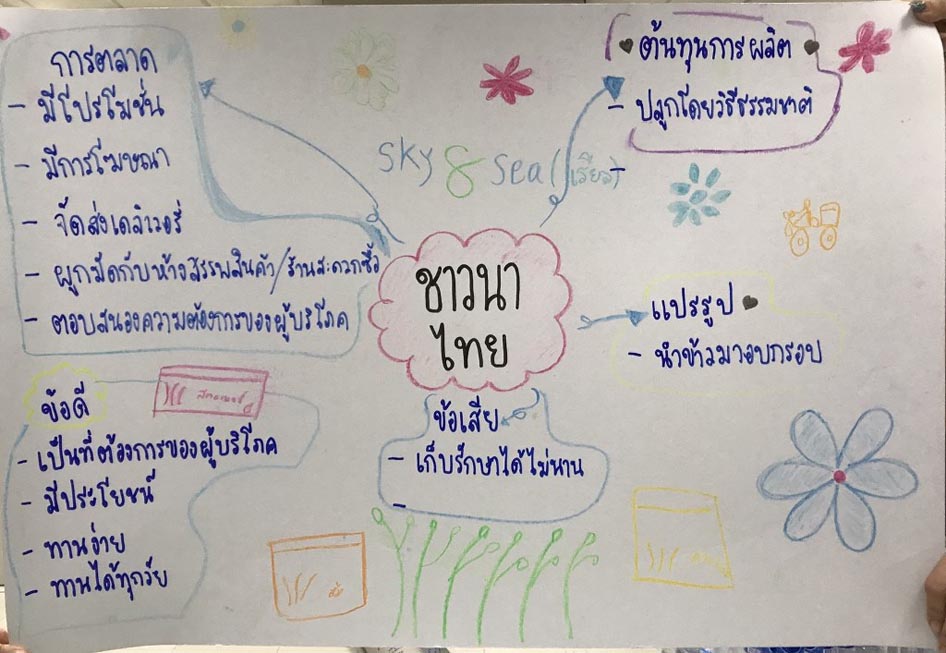 การตลาด
- มีโปรโมชั่น
- มีการโฆษณา
- จัดส่งเดลิเวอรี่
- ผูกมัดกับห้างสรรพสินค้า/ร้านสะดวกซื้อ
- ตอบสนองความต้องการของผู้บริโภค
ต้นทุนการผลิต
- ปลูกโดยวิธีธรรมชาติ
sky 8 sea (เรียว)
ชาวนา
ไทย
แปรรูป
- นำข้าวมาอบกรอบ
ข้อดี
- เป็นที่ต้องการของผู้บริโภค
- มีประโยชน์
- ทานง่าย
- ทานได้ทุกวัย
ข้อเสีย
- เก็บรักษาได้ไม่นาน
-